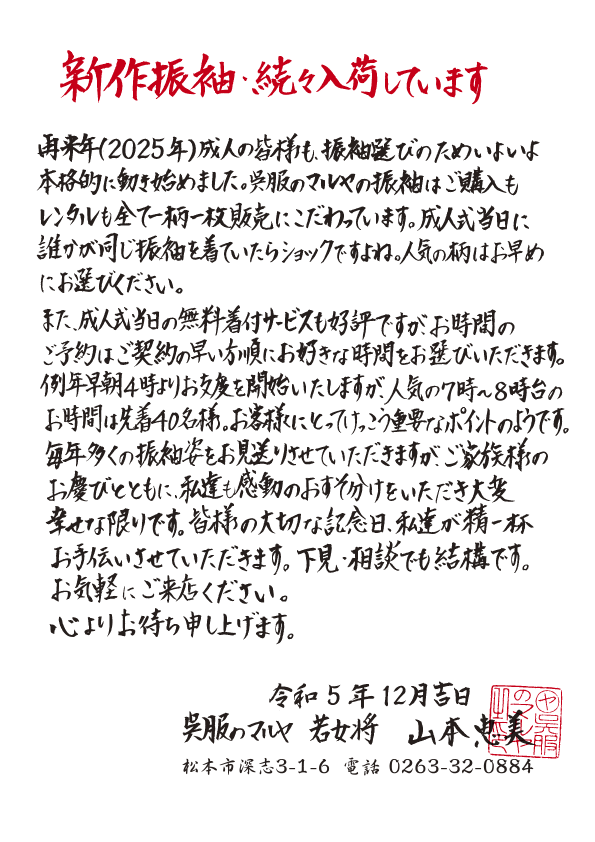 新作振袖・続々入荷しています
再来年(2025年)成人の皆様も、振袖選びのためいよいよ
本格的に動き始めました。呉服のマルヤの振袖はご購入も
レンタルも全て一柄一枚販売にこだわっています。成人式当日に
誰かが同じ振袖を着ていたらショックですよね。人気の柄はお早め
にお選びください。
また、成人式当日の無料着付サービスも好評ですが、お時間の
ご予約はご契約の早い方順にお好きな時間をお選びいただきます。
例年早朝4時よりお支度を開始いたしますが、人気の7時~8時台の
お時間は先着40名様。お客様にとってけっこう重要なポイントのようです。
毎年多くの振袖姿をお見送りさせていただきますが、ご家族様の
お慶びとともに、私達も感動のおすそ分けをいただき大変
幸せな限りです。皆様の大切な記念日、私達が精一杯
お手伝いさせていただきます。下見・相談でも結構です。
お気軽にご来店ください。
心よりお待ち申し上げます。
令和5年12月吉日
呉服のマルヤ 若女将 山本 恵美
松本市深志3-1-6 電話 0263-32-0884